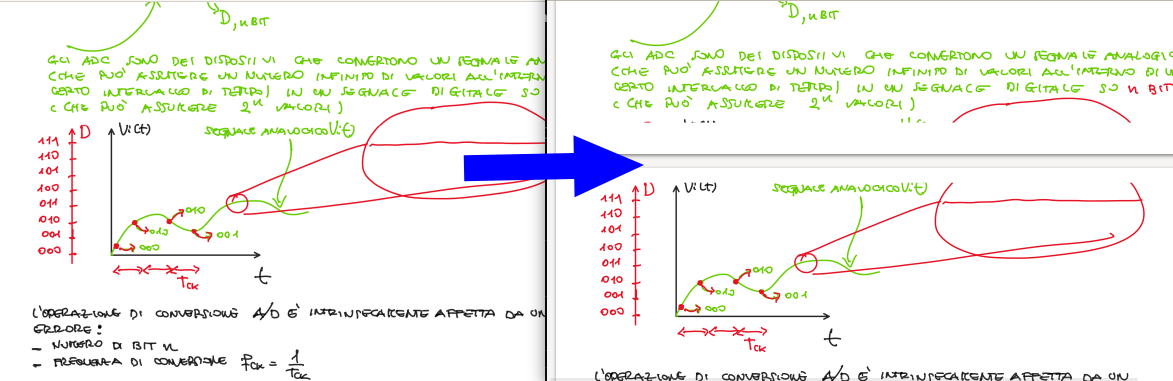 D, n BIT
GLI ADC SONO DEI DISPOSITIVI CHE CONVERTONO UN SEGNALE AN
(CHE PUÒ ASSUMERE UN NUMERO INFINITO DI VALORI ALL'INTERN
CERTO INTERVALLO DI TEMPO) IN UN SEGNALE DIGITALE SO
(CHE PUÒ ASSUMERE 2ⁿ VALORI)
D Vi(t) SEGNALE ANALOGICO Vi(t)
111
110
101
100
011
010 010
001 010 001
000 000
TCK t
L'OPERAZIONE DI CONVERSIONE A/D È INTRINSECAMENTE AFFETTA DA UN
ERRORE:
- NUMERO DI BIT n
- FREQUENZA DI CONVERSIONE fCK = 1/TCK
D, n BIT
GLI ADC SONO DEI DISPOSITIVI CHE CONVERTONO UN SEGNALE ANALOGIC
(CHE PUÒ ASSUMERE UN NUMERO INFINITO DI VALORI ALL'INTERNO DI U
CERTO INTERVALLO DI TEMPO) IN UN SEGNALE DIGITALE SO n BIT
(CHE PUÒ ASSUMERE 2ⁿ VALORI)
D Vi(t) SEGNALE ANALOGICO Vi(t)
111
110
101
100
011
010 010
001 010 001
000 000
TCK t
L'OPERAZIONE DI CONVERSIONE A/D È INTRINSECAMENTE AFFETTA DA UN